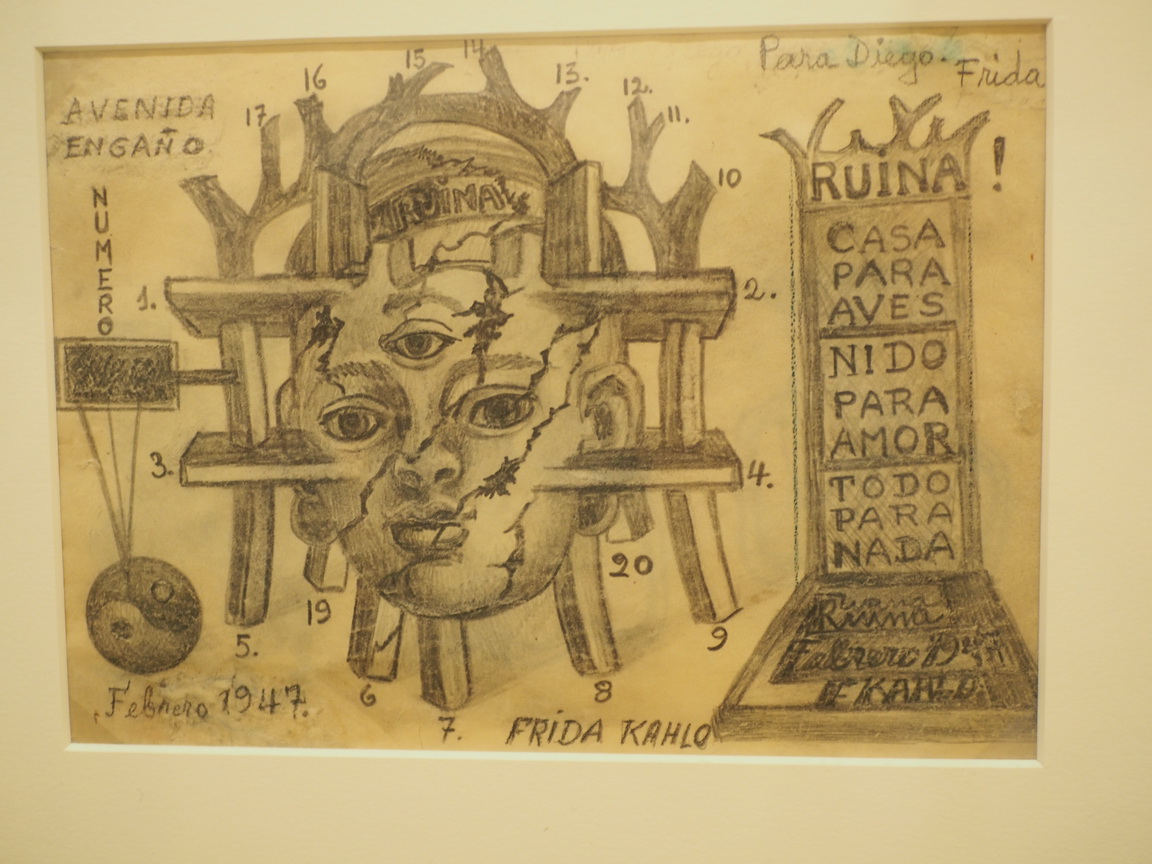 Para Diego.
Frida
AVENIDA
ENGAÑO
NUMERO
17.
16
15
14
13.
12.
11.
10
RUINA
1.
2.
3.
4.
5.
6
7.
8
9
19
20
Febrero 1947.
FRIDA KAHLO
RUINA!
CASA
PARA
AVES
NIDO
PARA
AMOR
TODO
PARA
NADA
Ruina
Febrero 19
F. KAHLO.